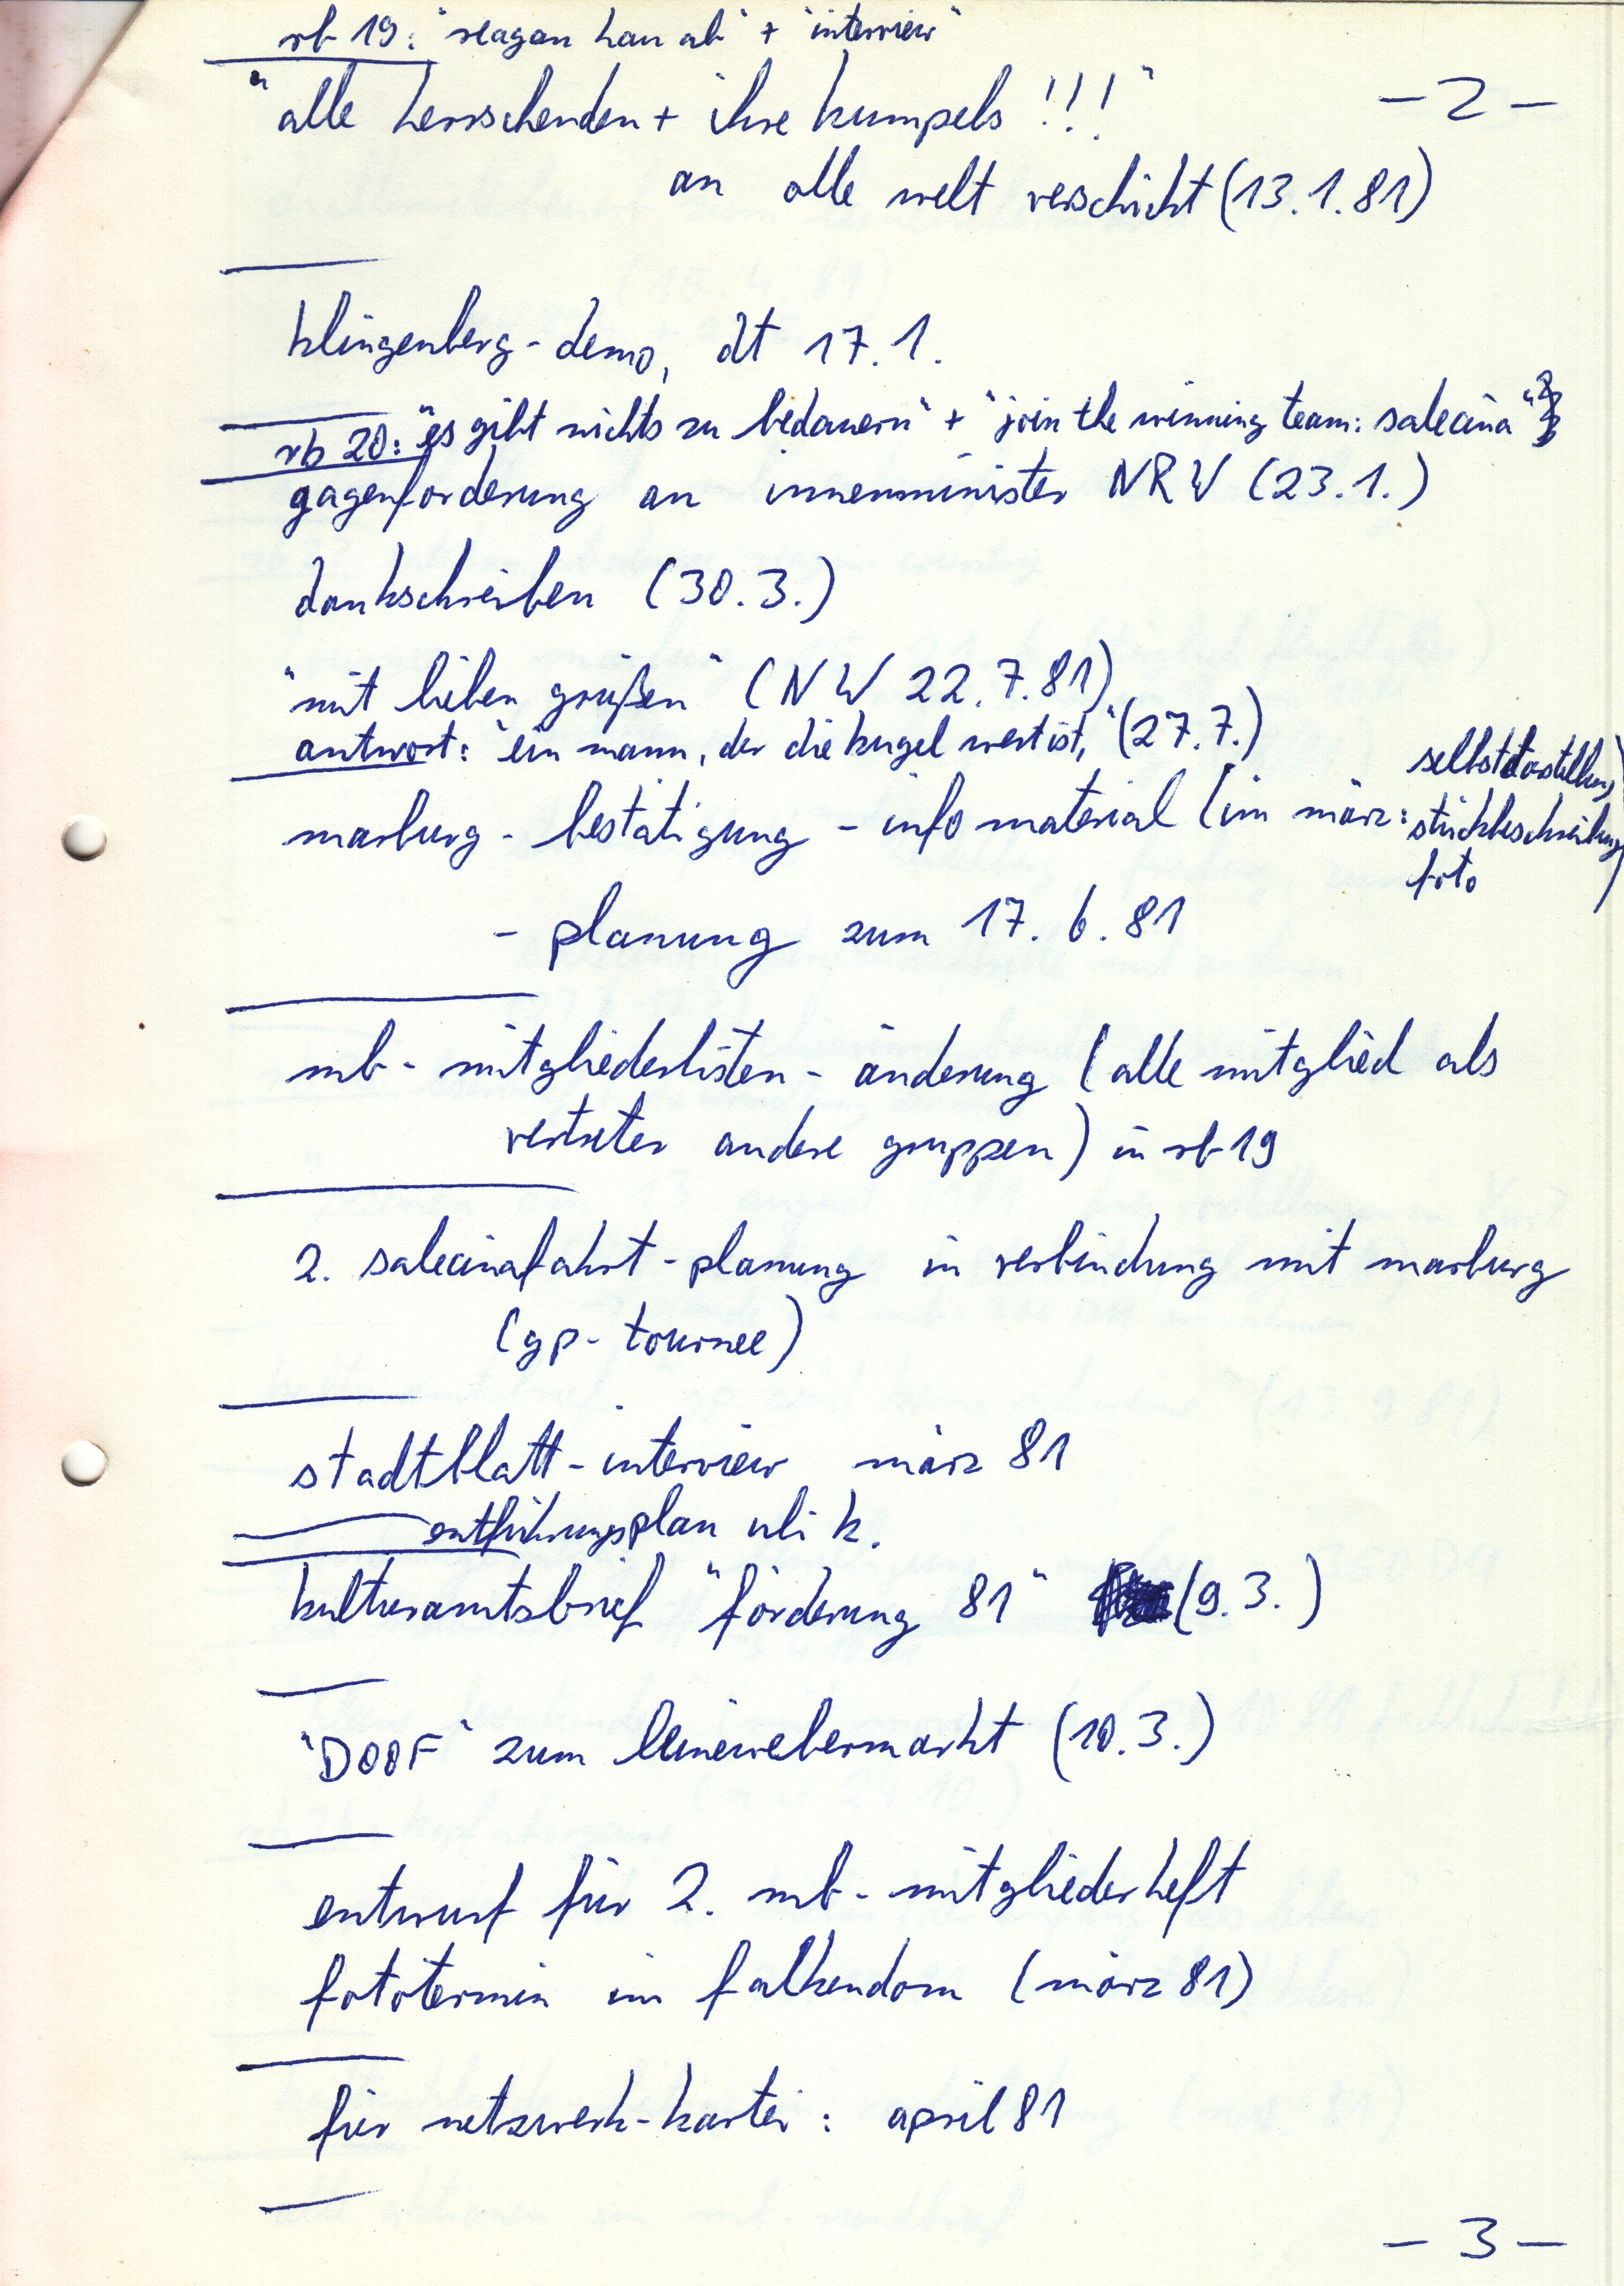 rb 19: "reagan hau ab" + "interview"
- 2 -
"alle herrschenden + ihre kumpels !!!"
an alle welt verschickt (13.1.81)
klingenberg-demo, dt 17.1.
rb 20: "es gibt nichts zu bedauern" + "join the winning team: salecina"
gagenforderung an innenminister NRW (23.1.)
dankschreiben (30.3.)
"mit lieben grüßen" (NW 22.7.81)
antwort: "ein mann, der die kugel wert ist," (27.7.)
marburg - bestätigung - infomaterial (im märz: selbstdarstellung
stückbeschreibung
foto)
- planung zum 17.6.81
mb-mitgliederlisten-änderung (alle mitglied als
vertreter andere gruppen) in rb 19
2. salecinafahrt-planung in verbindung mit marburg
(gp-tournee)
stadtblatt-interview märz 81
entführungsplan uli k.
kulturamtsbrief "förderung 81" (9.3.)
"DOOF" zum leinewebermarkt (10.3.)
entwurf für 2. mb-mitgliederheft
fototermin im falkendom (märz 81)
für netzwerk-kartei: april 81
- 3 -